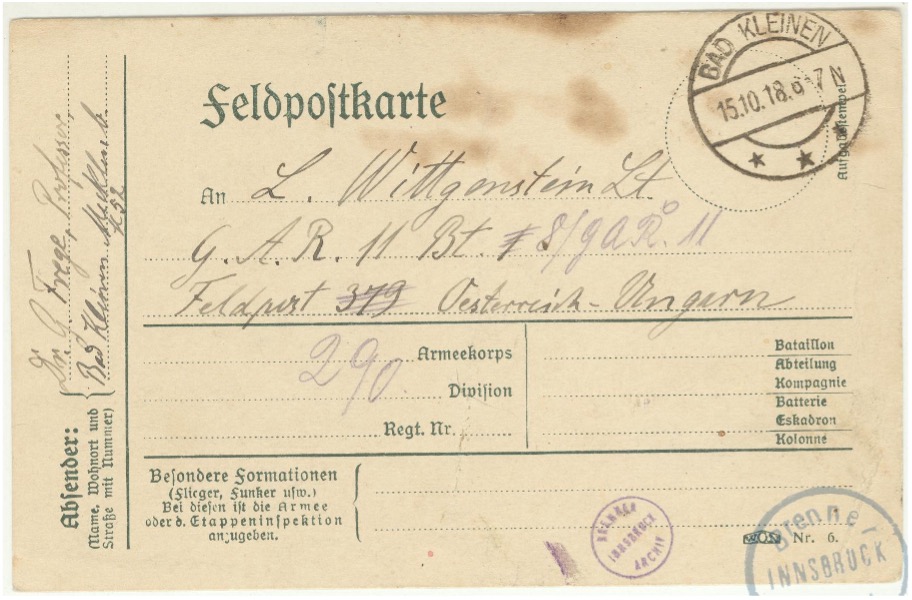 Feldpostkarte
BAD KLEINEN
15.10.18.6-7 N
Aufgabestempel
An L. Wittgenstein Lt
G. A. R. 11 Bt. 8/GAR. 11
Feldpost 379 Oesterreich-Ungarn
290
Armeekorps
Division
Regt. Nr.
Bataillon
Abteilung
Kompagnie
Batterie
Eskadron
Kolonne
Besondere Formationen
(Flieger, Funker usw.)
Bei diesen ist die Armee
oder d. Etappeninspektion
anzugeben.
Absender:
(Name, Wohnort und
Straße mit Nummer)
Dr. G. Frege, Professor,
Bad Kleinen Mecklenb.
52
BRENNER
INNSBRUCK
ARCHIV
Nr. 6.
Brenner-
INNSBRUCK